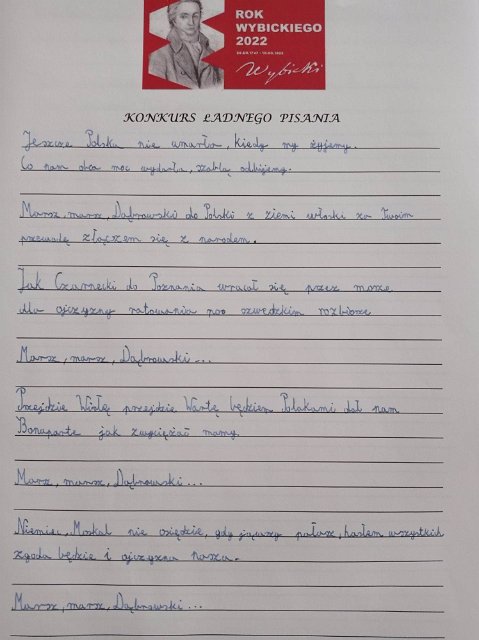 ROK
WYBICKIEGO
2022
Wybicki
KONKURS ŁADNEGO PISANIA
Jeszcze Polska nie umarła, kiedy my żyjemy.
Co nam obca moc wydarła, szablą odbijemy.
Marsz, marsz, Dąbrowski do Polski z ziemi włoski za Twoim
przewodę złączem się z narodem.
Jak Czarnecki do Poznania wracał się przez morze
dla ojczyzny ratowania poo szwedzkim rozbiorze
Marsz, marsz, Dąbrowski...
Przejdzie Wisłę przejdzie Wartę będziem Polakami dał nam
Bonaparte jak zwyciężać mamy
Marz, marsz, Dąbrowski...
Niemiec, Moskal nie osiędzie, gdy jąwszy pałasz, hasłem wszystkich
zgoda będzie i ojczyzna nasza.
Marsz, marsz, Dąbrowski...